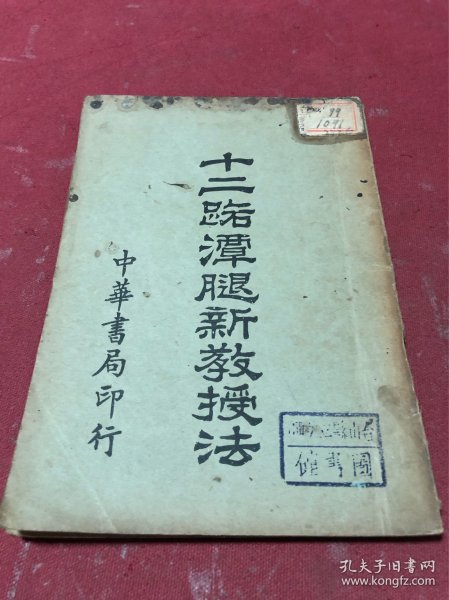 十二路潭腿新教授法
中華書局印行
99
1091
圖書館
孔夫子旧书网
www.kongfz.com